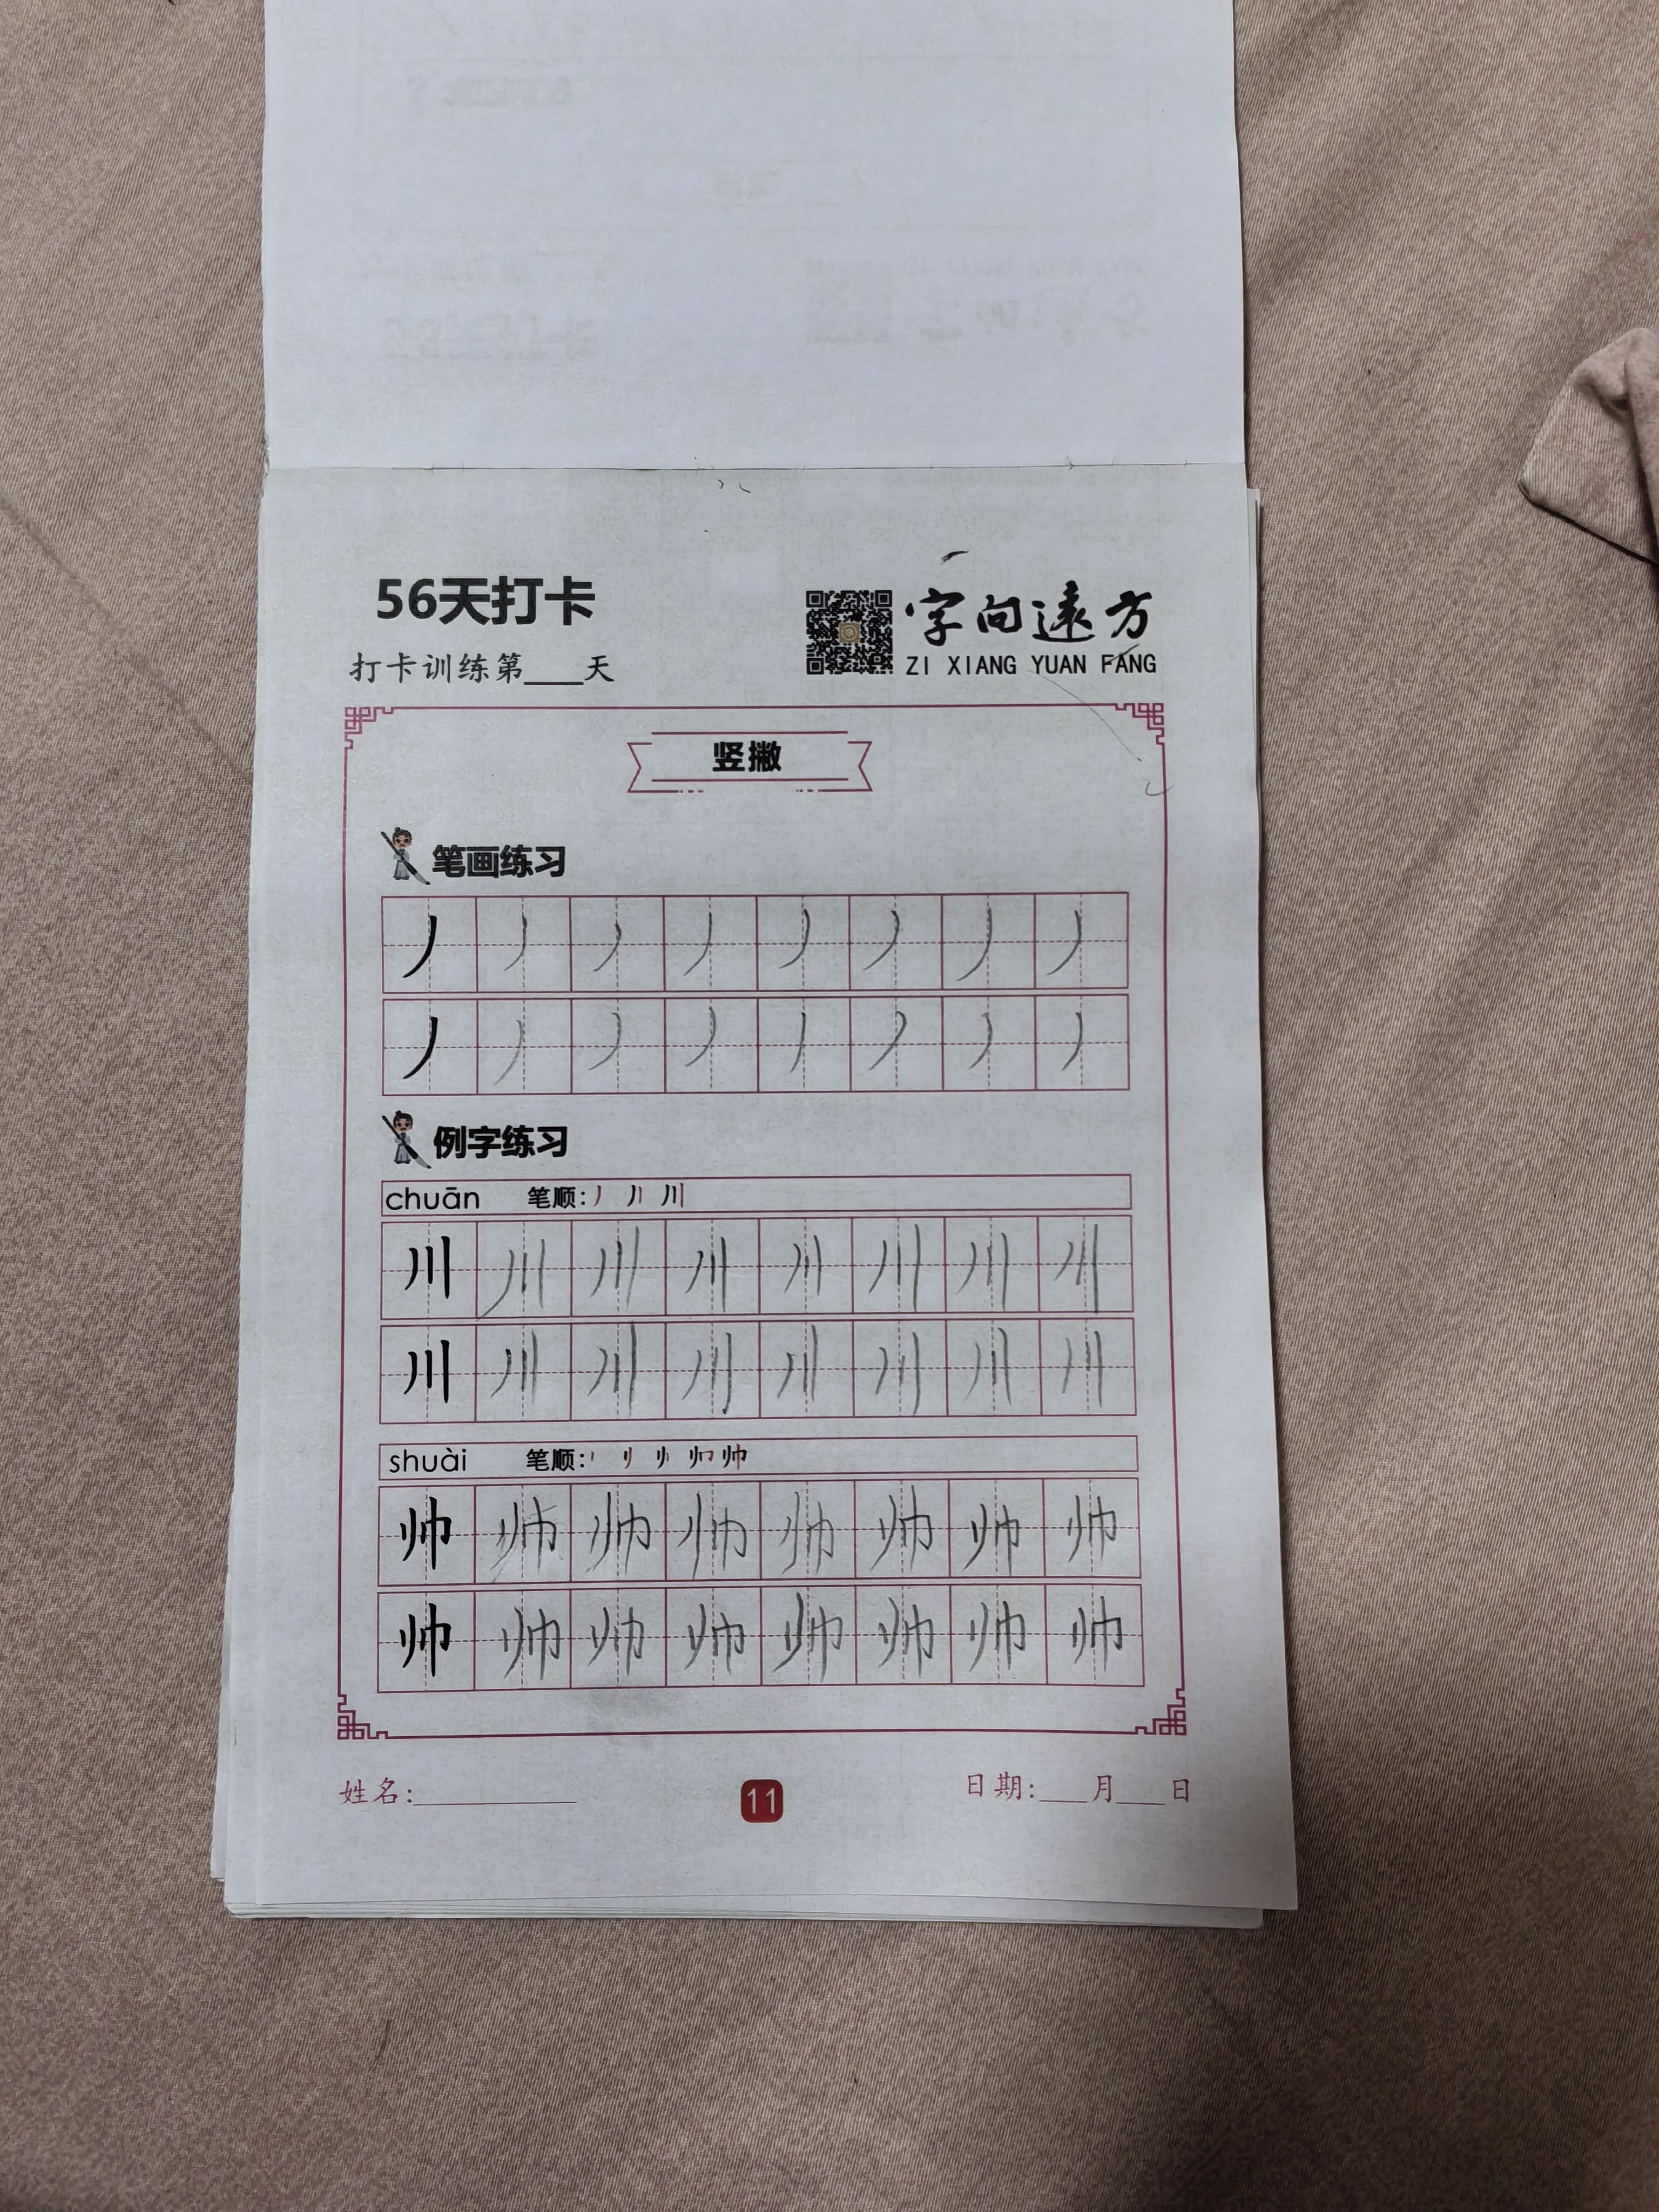 56天打卡
字向遠方
ZI XIANG YUAN FANG
打卡训练第____天
竖撇
笔画练习
丿 丿 丿 丿 丿 丿 丿 丿
丿 丿 丿 丿 丿 丿 丿 丿
例字练习
chuān 笔顺: 丿 丿丨 川
川 川 川 川 川 川 川 川
川 川 川 川 川 川 川 川
shuài 笔顺: 帅
帅 帅 帅 帅 帅 帅 帅 帅
帅 帅 帅 帅 帅 帅 帅 帅
姓名:__________
11
日期:___月___日